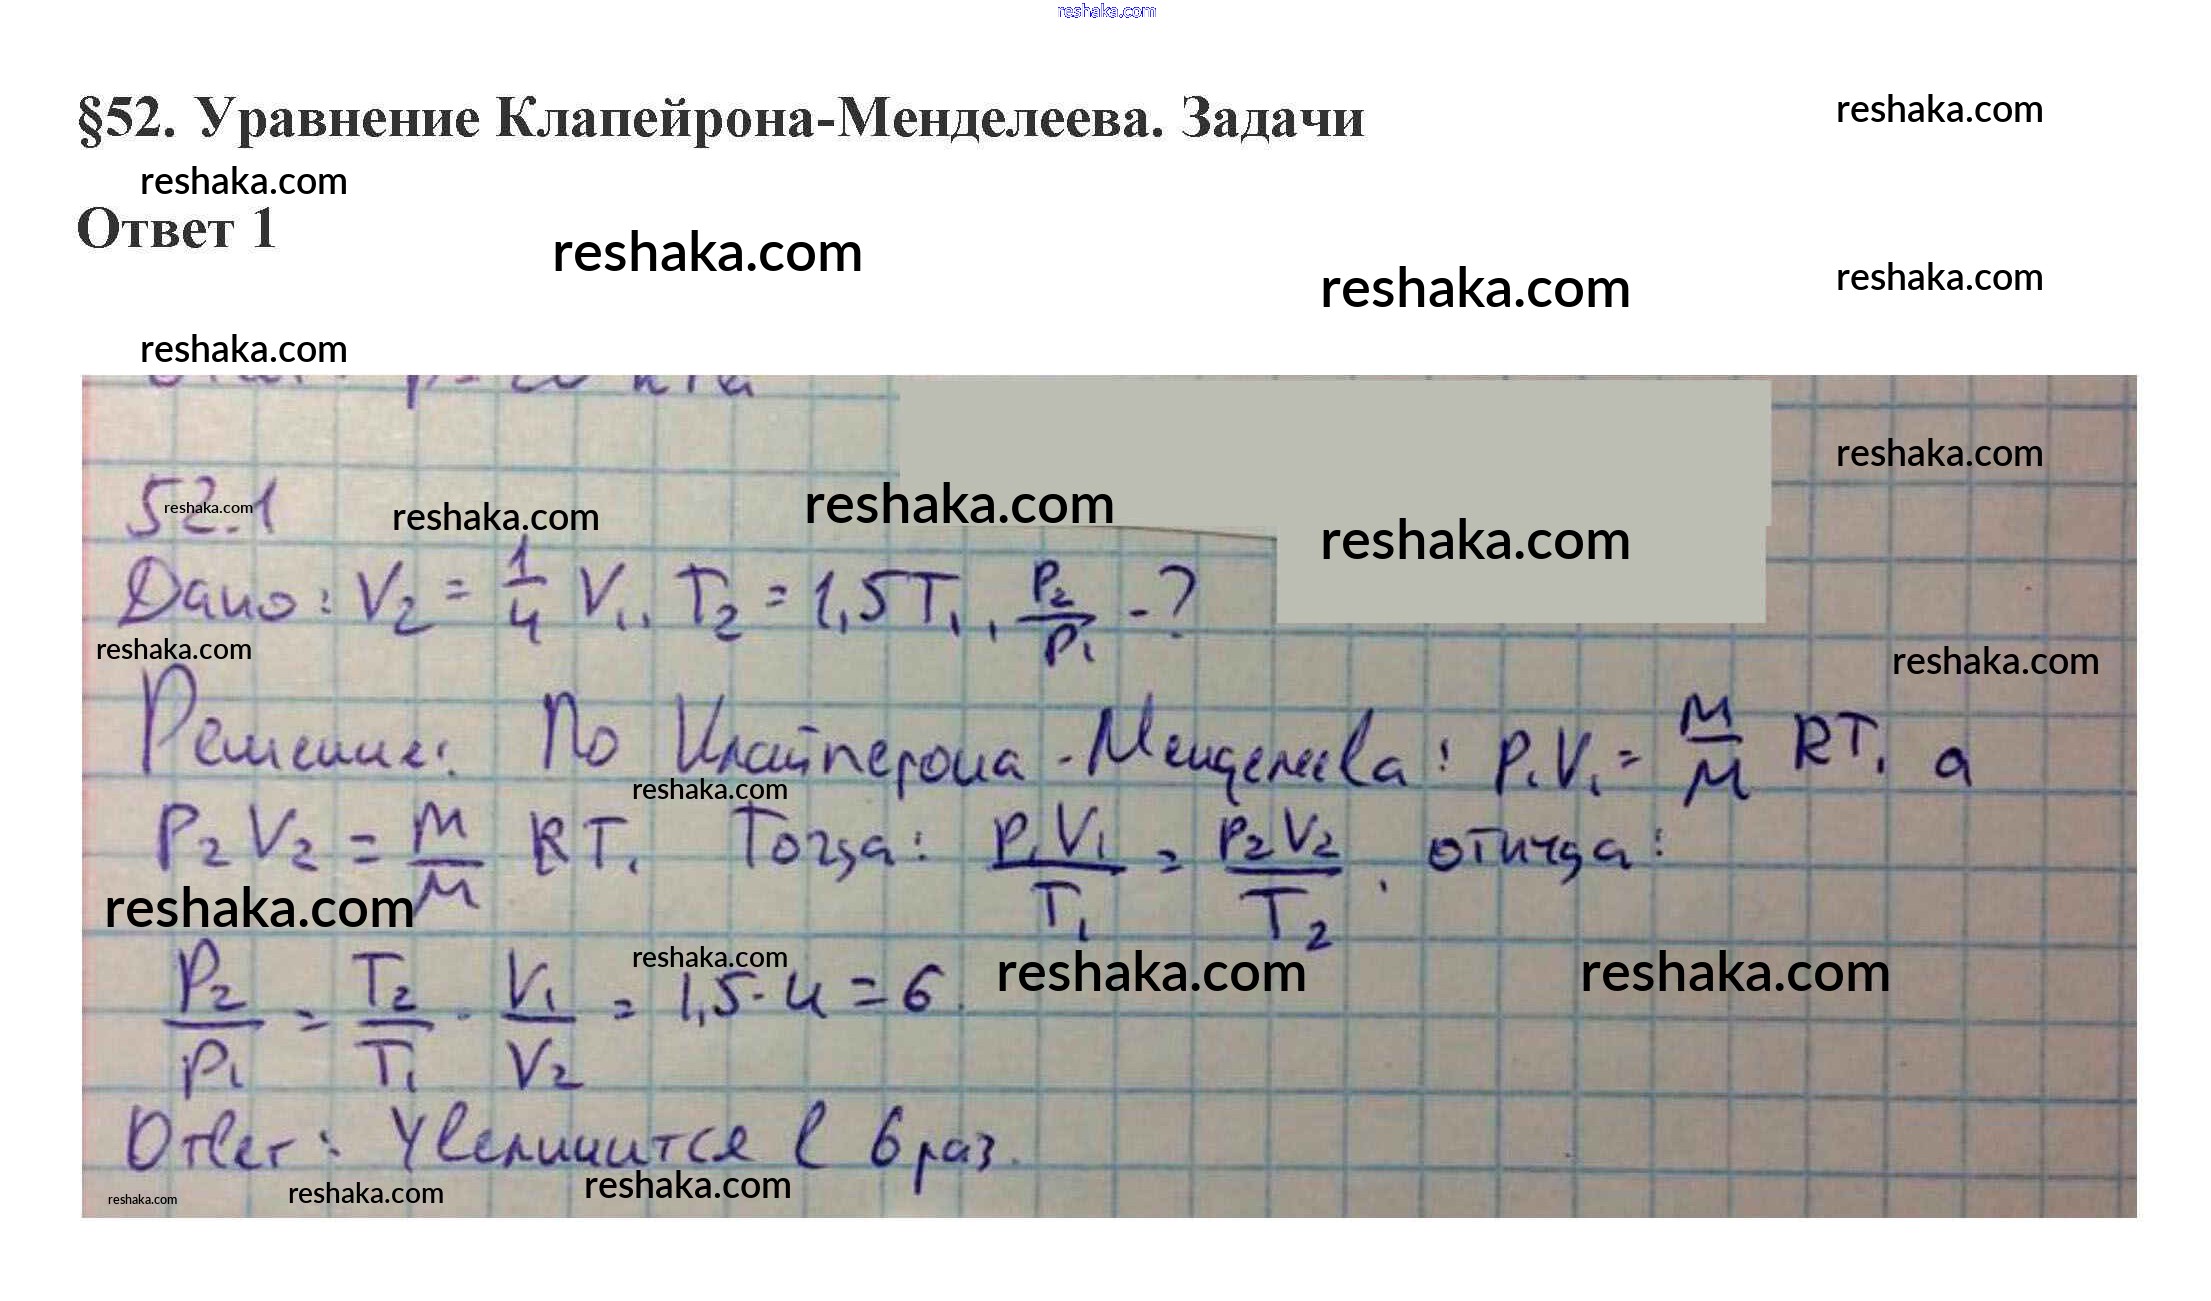 reshaka.com
§52. Уравнение Клапейрона-Менделеева. Задачи
reshaka.com
reshaka.com
Ответ 1
reshaka.com
reshaka.com
reshaka.com
reshaka.com
reshaka.com
52.1
reshaka.com
reshaka.com
reshaka.com
reshaka.com
Дано: V₂ = 1/4 V₁, T₂ = 1,5T₁, P₂/P₁ - ?
reshaka.com
reshaka.com
Решение: По Клайперона-Менделеева: P₁V₁ = m/M RT₁ а
reshaka.com
P₂V₂ = m/M RT₁ Тогда: P₁V₁/T₁ = P₂V₂/T₂, откуда:
reshaka.com
reshaka.com
reshaka.com
reshaka.com
P₂/P₁ = T₂/T₁ · V₁/V₂ = 1,5·4 = 6.
Ответ: Увеличится в 6 раз.
reshaka.com
reshaka.com
reshaka.com